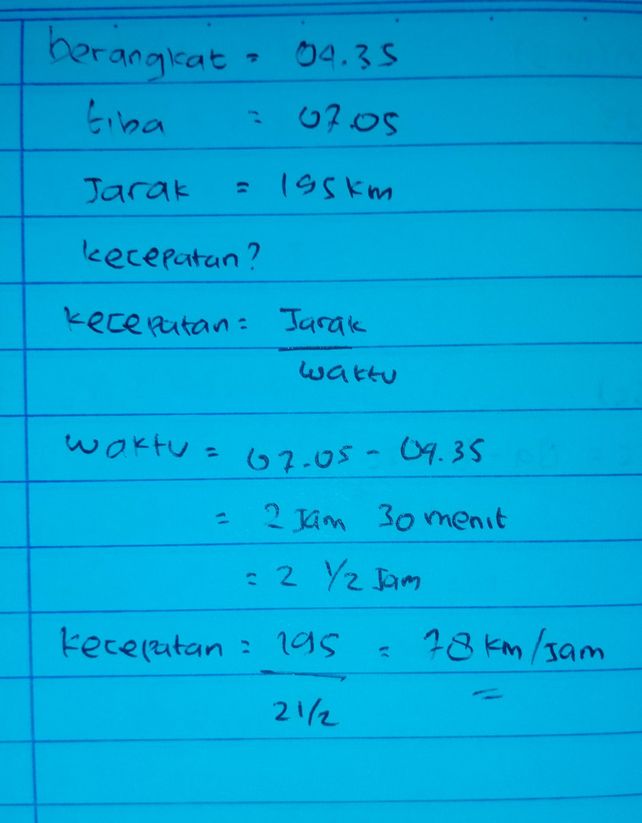 berangkat = 04.35
tiba = 07.05
Jarak = 195 km
kecepatan?
kecepatan = Jarak
waktu
waktu = 07.05 - 04.35
= 2 Jam 30 menit
= 2 1/2 Jam
kecepatan = 195 = 78 km/Jam
2 1/2